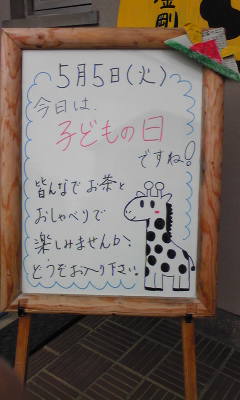 金剛
5月5日(火)
今日は、
子どもの日
ですね!
皆んなでお茶と
おしゃべりで
楽しみませんか、
どうぞお入り下さい。